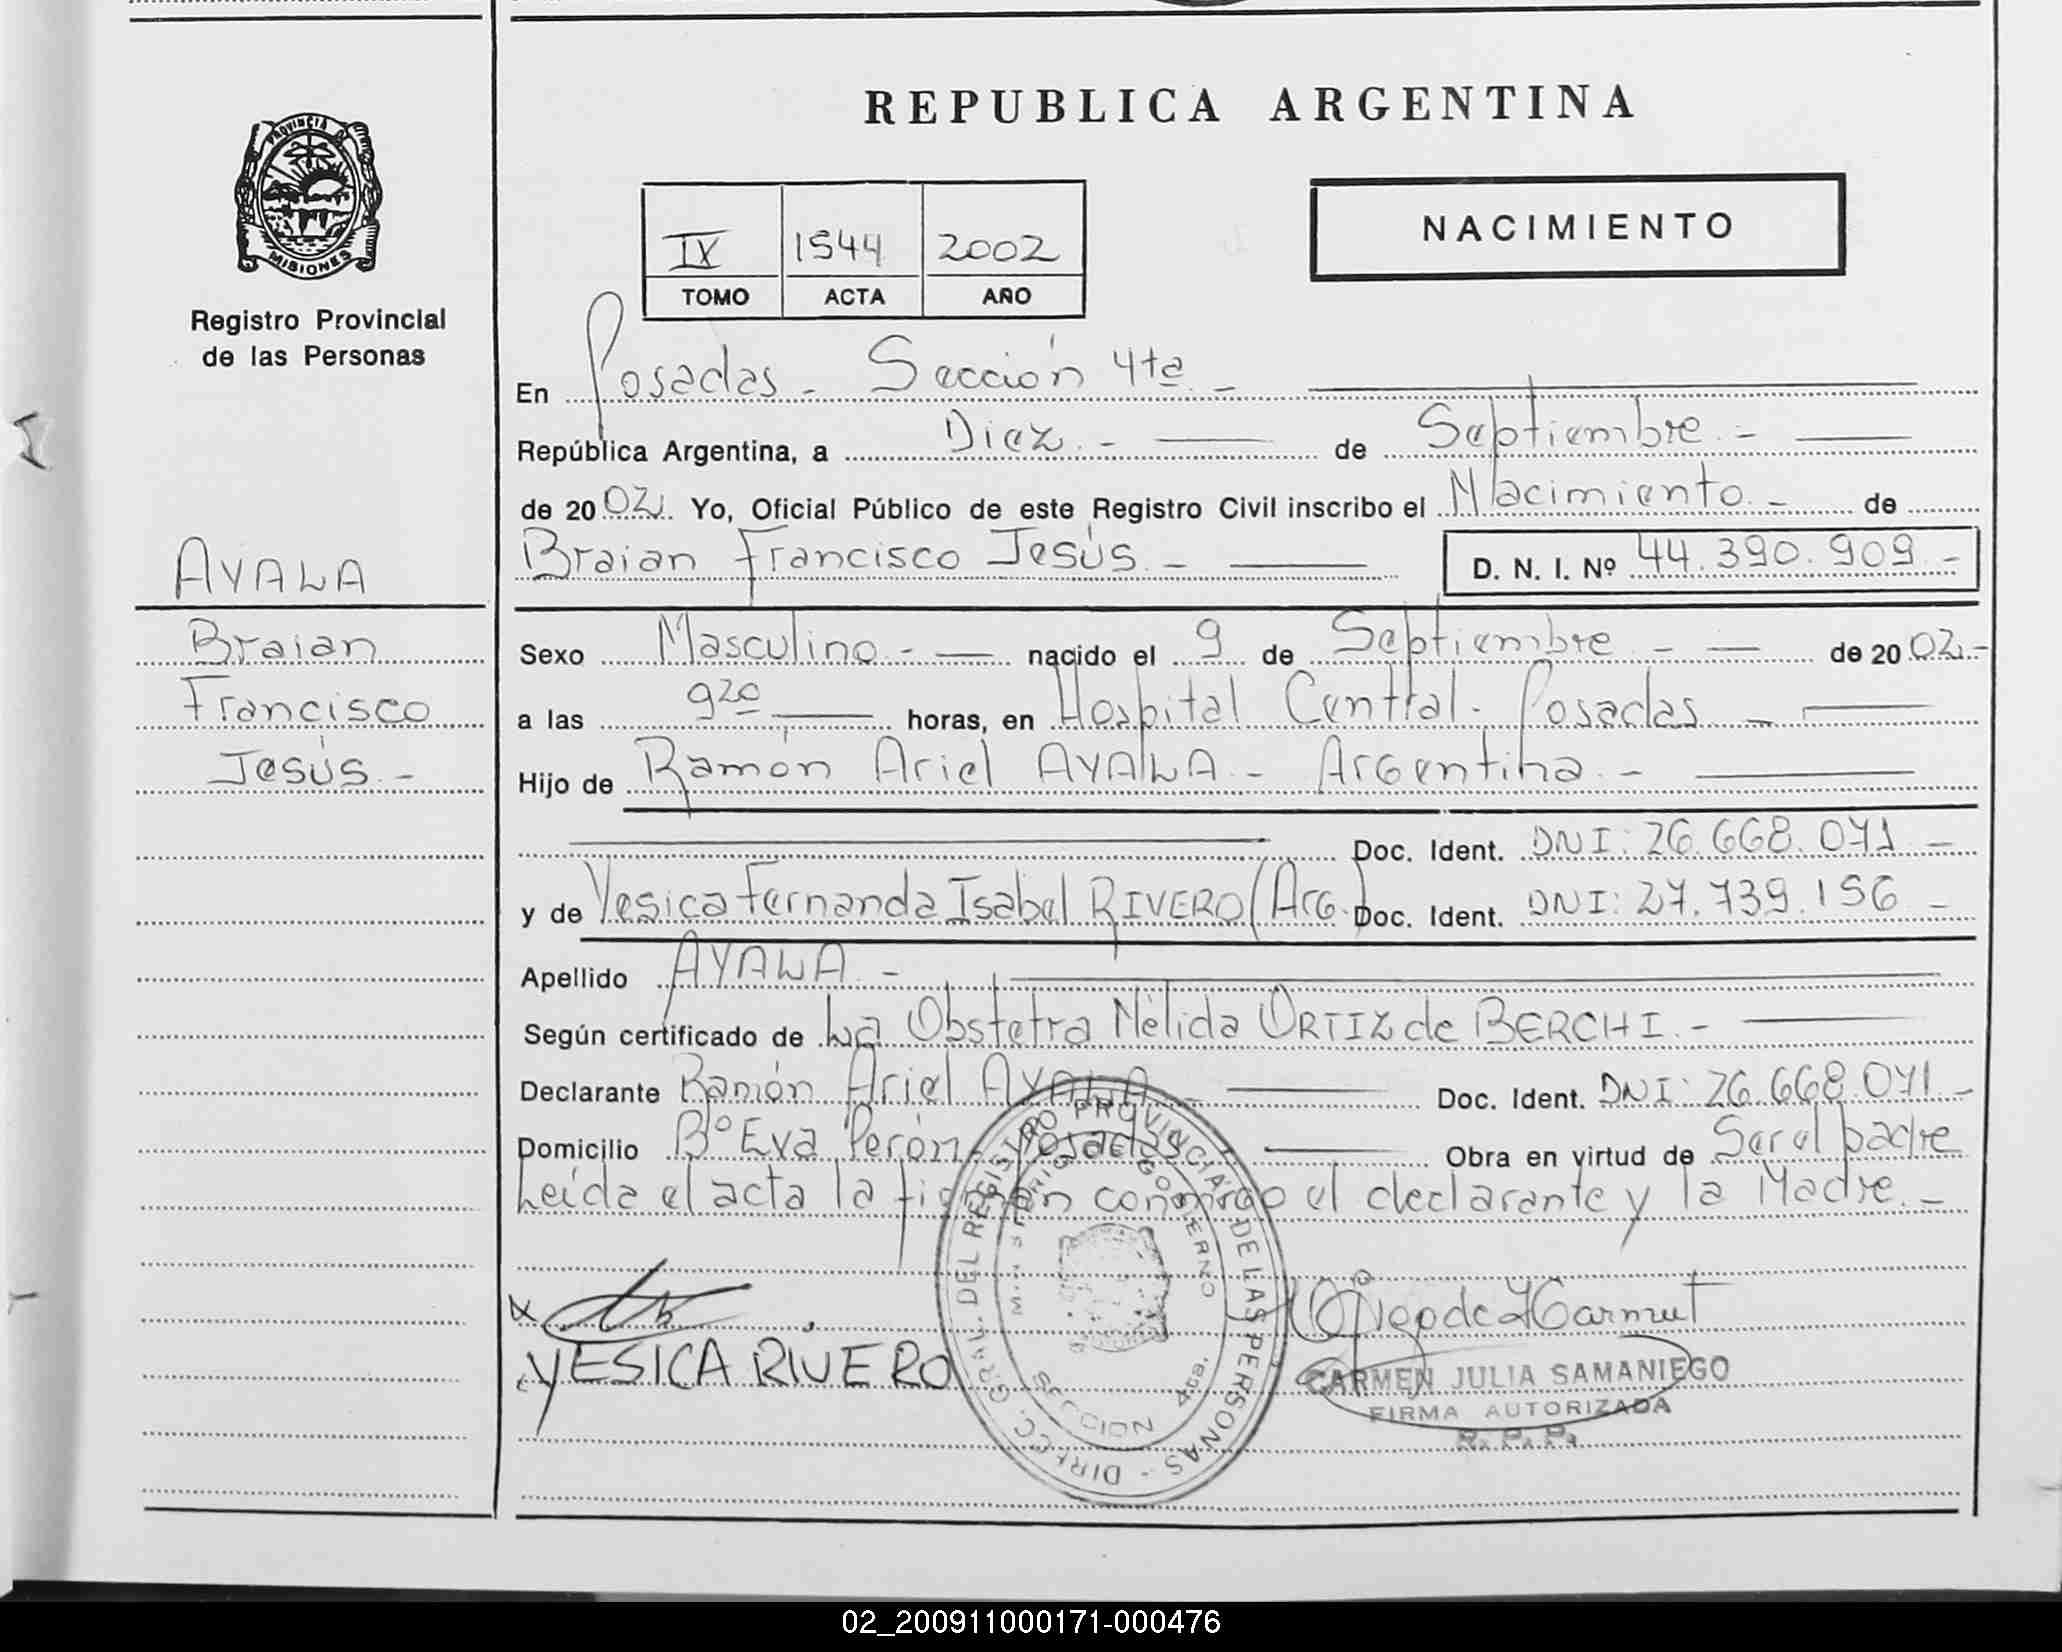 REPUBLICA ARGENTINA
PROVINCIA DE
MISIONES
Registro Provincial
de las Personas
NACIMIENTO
IX 1544 2002
TOMO ACTA AÑO
En Posadas - Sección 4ta. -
República Argentina, a Diez. - de Septiembre. -
de 20 02. Yo, Oficial Público de este Registro Civil inscribo el Nacimiento. - de
Braian Francisco Jesús. - D. N. I. Nº 44.390.909. -
AYALA
Braian
Francisco
Jesús. -
Sexo Masculino. - nacido el 9 de Septiembre. - de 20 02. -
a las 9 20 horas, en Hospital Central. Posadas. -
Hijo de Ramón Ariel AYALA. - Argentina. -
Doc. Ident. DNI: 26.668.071. -
y de Yesica Fernanda Isabel RIVERO (Arg.) Doc. Ident. DNI: 27.739.156 -
Apellido AYALA. -
Según certificado de La Obstetra Nélida ORTIZ de BERCHI. -
Declarante Ramón Ariel AYALA. - Doc. Ident. DNI: 26.668.071. -
Domicilio Bº Eva Perón. Posadas Obra en virtud de Ser el padre
Leída el acta la firman conmigo el declarante y la Madre. -
YESICA RIVERO
DIRECC. GRAL. DEL REGISTRO PROVINCIAL DE LAS PERSONAS -
MINISTERIO GOBIERNO
SECCION 4ta.
CARMEN JULIA SAMANIEGO
FIRMA AUTORIZADA
R. P. P.
02_200911000171-000476